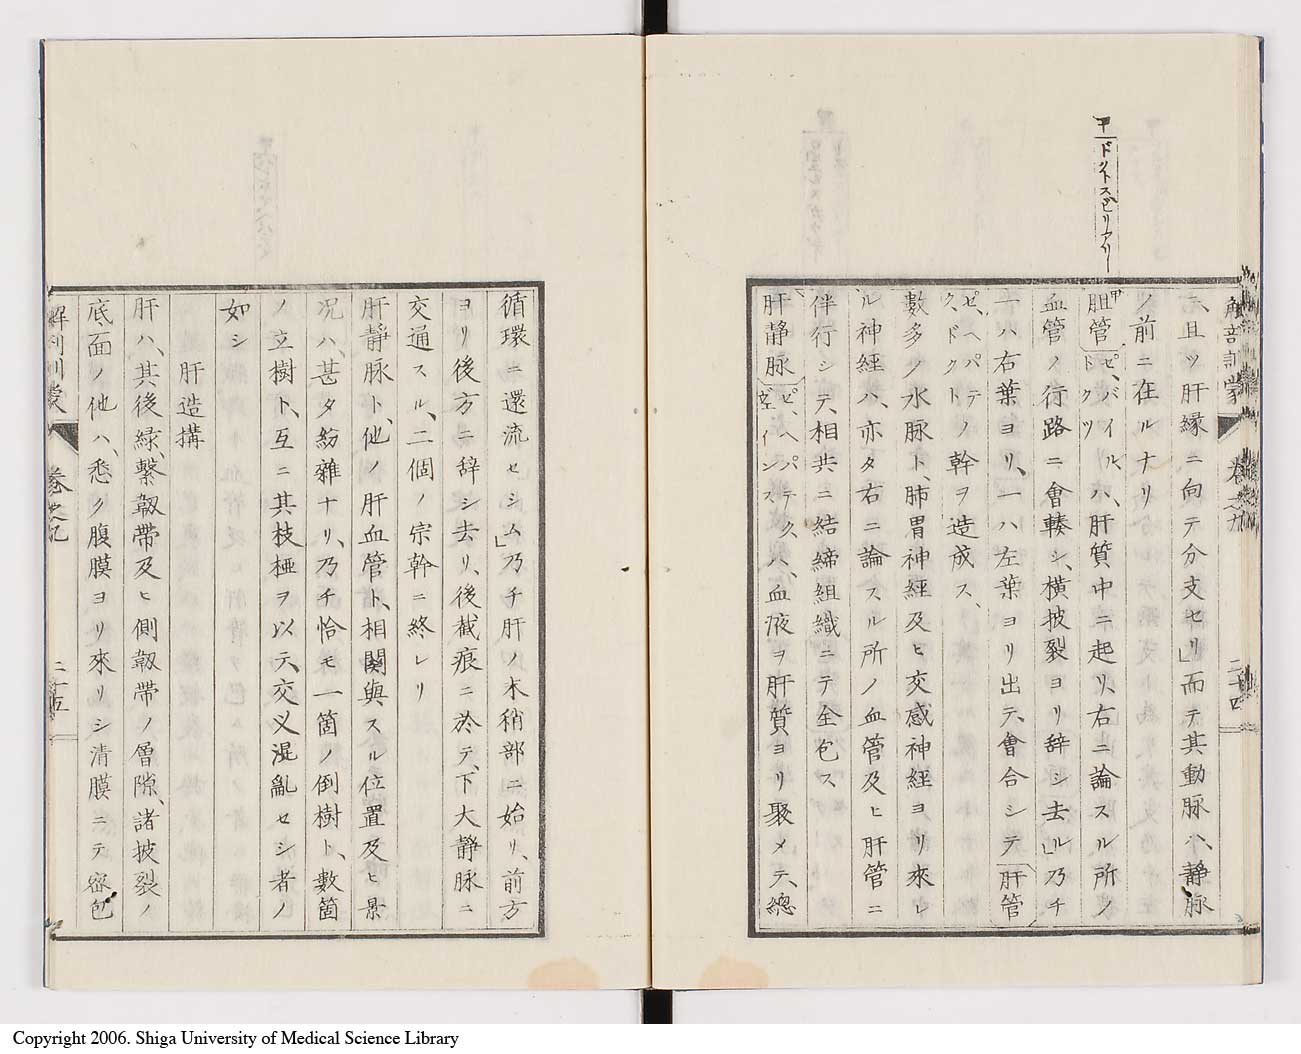 甲ドクトスビリアリー
ヽ且ツ肝縁ニ向テ分支セリ」而テ其動脉ハ、静脉
ノ前ニ在ルナリ
甲胆管ゼ、バイル、ドクツハ、肝質中ニ起リ、右ニ論スル所ノ
血管ノ行路ニ會輳シ、横披裂ヨリ辞シ去ル」乃チ
一ハ右葉ヨリ、一ハ左葉ヨリ出テ、會合シテ肝管
ゼ、ヘパテクドクトノ幹ヲ造成ス、
數多ノ水脉ト、肺胃神経及ヒ交感神経ヨリ來レ
ル神経ハ、亦タ右ニ論スル所ノ血管及ヒ肝管ニ
伴行シテ、相共ニ結締組織ニテ全包ス
肝静脉ゼ、ヘパテクヱインスハ、血液ヲ肝質ヨリ聚メテ、總
解剖訓蒙 卷之九 二十四
循環ニ還流セシム」乃チ肝ノ木稍部ニ始リ、前方
ヨリ後方ニ辞シ去リ、後截痕ニ於テ、下大静脉ニ
交通スル、二個ノ宗幹ニ終レリ
肝静脉ト、他ノ肝血管ト、相関與スル位置及ヒ景
况ハ、甚タ紛雜ナリ、乃チ恰モ一箇ノ倒樹ト、數箇
ノ立樹ト、互ニ其枝椏ヲ以テ、交叉混亂セシ者ノ
如シ
肝造搆
肝ハ、其後緑、繫韌帯及ヒ側韌帯ノ層隙、諸披裂ノ
底面ノ他ハ、悉ク腹膜ヨリ來リシ清膜ニテ密包
解剖訓蒙 卷之九 二十五
Copyright 2006. Shiga University of Medical Science Library